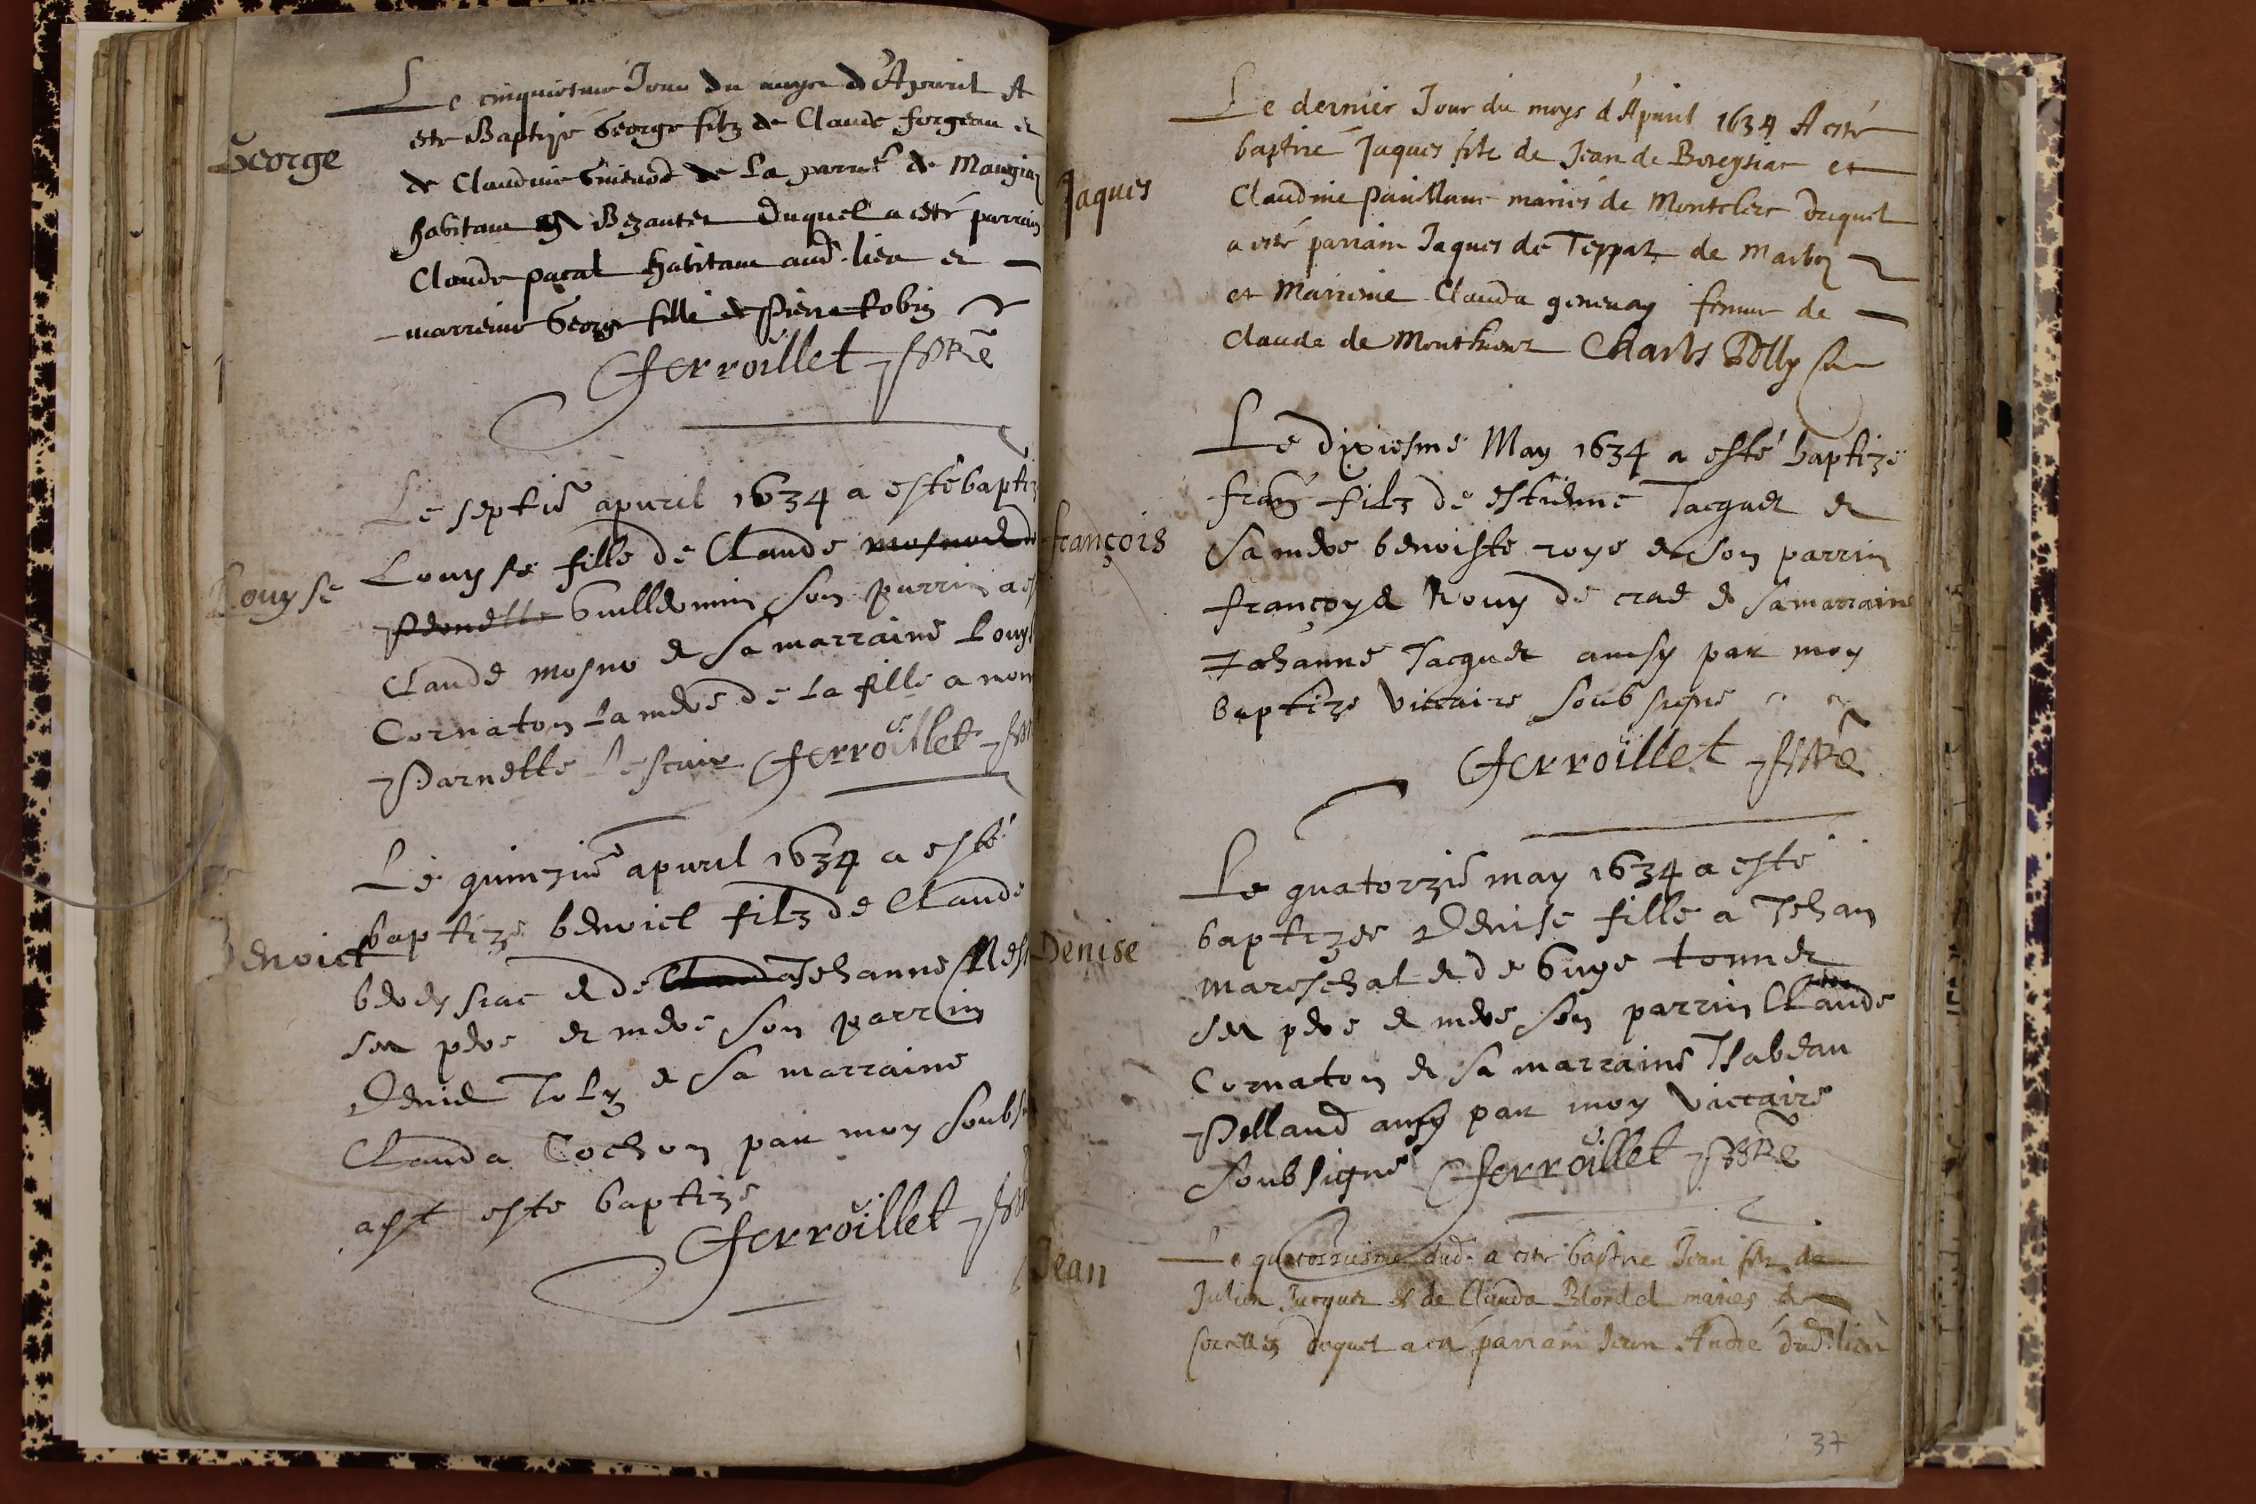 George
Le cinquiesme Jour du moys d'Apvril A
este Baptise George filz de Claude forgeau et
de Claudine de La parr de
habitant Bezautet duquel a esté parrain
Claude pacal habitant aud. lieu et
marreine George fille de Pierre Robin
Ferroillet
Louyse
Le septie apvril 1634 a esté bapti
Louyse fille de Claude
Guilldomin son parrin a
Claude mosno et sa marraine Louys
Cornaton la mere de la fille a nom
Parnette Ferroillet
Benoict
Le quinzie apvril 1634 a esté
baptize benoict filz de Claude
et de Jehanne
ses pere et mere son parrin
Denis Joly et sa marraine
Clauda Cochon par moy soubs
este baptize
Ferroillet
Jaques
Le dernier Jour du moys d'Apvril 1634 A esté
baptisé Jaques filz de Jean de Boreysiat et
Claudine mariés de Montclerc duquel
a esté parrain Jaques de Teppat de Marboz
et Marreine Clauda genevay femme de
Claude de Charles Jolly
françois
Le dixiesme May 1634 a esté baptize
fran filz de estienne Jacquet et
sa mere benoiste roye et son parrin
françoys Rouy de cras et sa marraine
Jehanne Jacquet ainsy par moy
baptize viccaire soubsigne
Ferroillet
Denise
Le quatorzie may 1634 a esté
baptizee Denise fille a Jehan
mareschal et de Guye tonnet
ses pere et mere son parrin Claude
Cornaton et sa marraine Isabeau
Pelland ainsy par moy viccaire
soubsigné Ferroillet
Jean
Le quatorziesme dud. a esté baptise Jean filz de
Julien Jacquet et de Clauda Blondel mariés
duquel a esté parrain Jean André dud. lieu
37